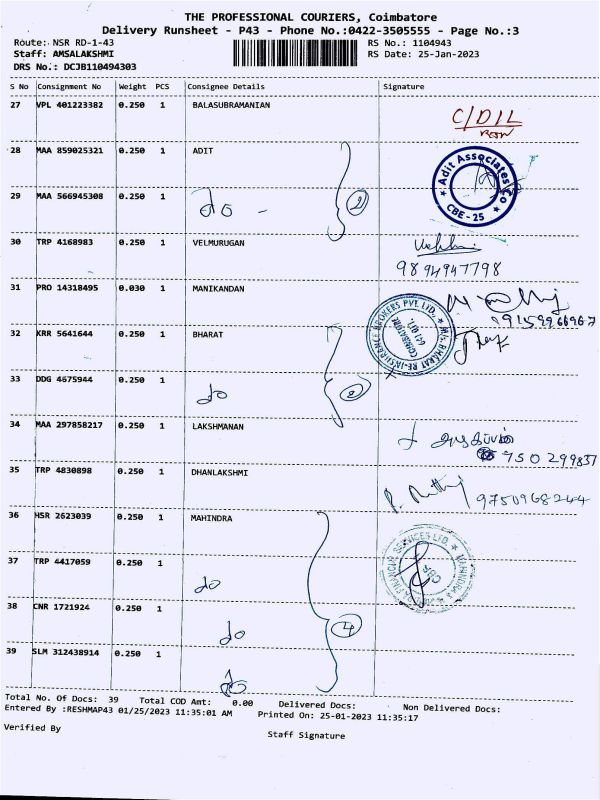 THE PROFESSIONAL COURIERS, Coimbatore
Delivery Runsheet - P43 - Phone No.:0422-3505555 - Page No.:3
Route: NSR RD-1-43 RS No.: 1104943
Staff: AMSALAKSHMI RS Date: 25-Jan-2023
DRS No.: DCJB110494303
S No Consignment No Weight PCS Consignee Details Signature
27 VPL 401223382 0.250 1 BALASUBRAMANIAN C/DIL
28 MAA 859025321 0.250 1 ADIT Adit Associates
29 MAA 566945308 0.250 1 do - 2 CBE - 25
30 TRP 4168983 0.250 1 VELMURUGAN
9894947798
31 PRO 14318495 0.030 1 MANIKANDAN
9915996967
32 KRR 5641644 0.250 1 BHARAT M/s. BHARAT RE-INSURANCE BROKERS PVT. LTD. COIMBATORE 641 011
33 DDG 4675944 0.250 1 do 2
34 MAA 297858217 0.250 1 LAKSHMANAN
750299837
35 TRP 4830898 0.250 1 DHANLAKSHMI 9750968244
36 HSR 2623039 0.250 1 MAHINDRA
37 TRP 4417059 0.250 1 do MAHINDRA SERVICES LTD CBE
38 CNR 1721924 0.250 1 do 4
39 SLM 312438914 0.250 1 do
Total No. Of Docs: 39 Total COD Amt: 0.00 Delivered Docs: Non Delivered Docs:
Entered By :RESHMAP43 01/25/2023 11:35:01 AM Printed On: 25-01-2023 11:35:17
Verified By Staff Signature